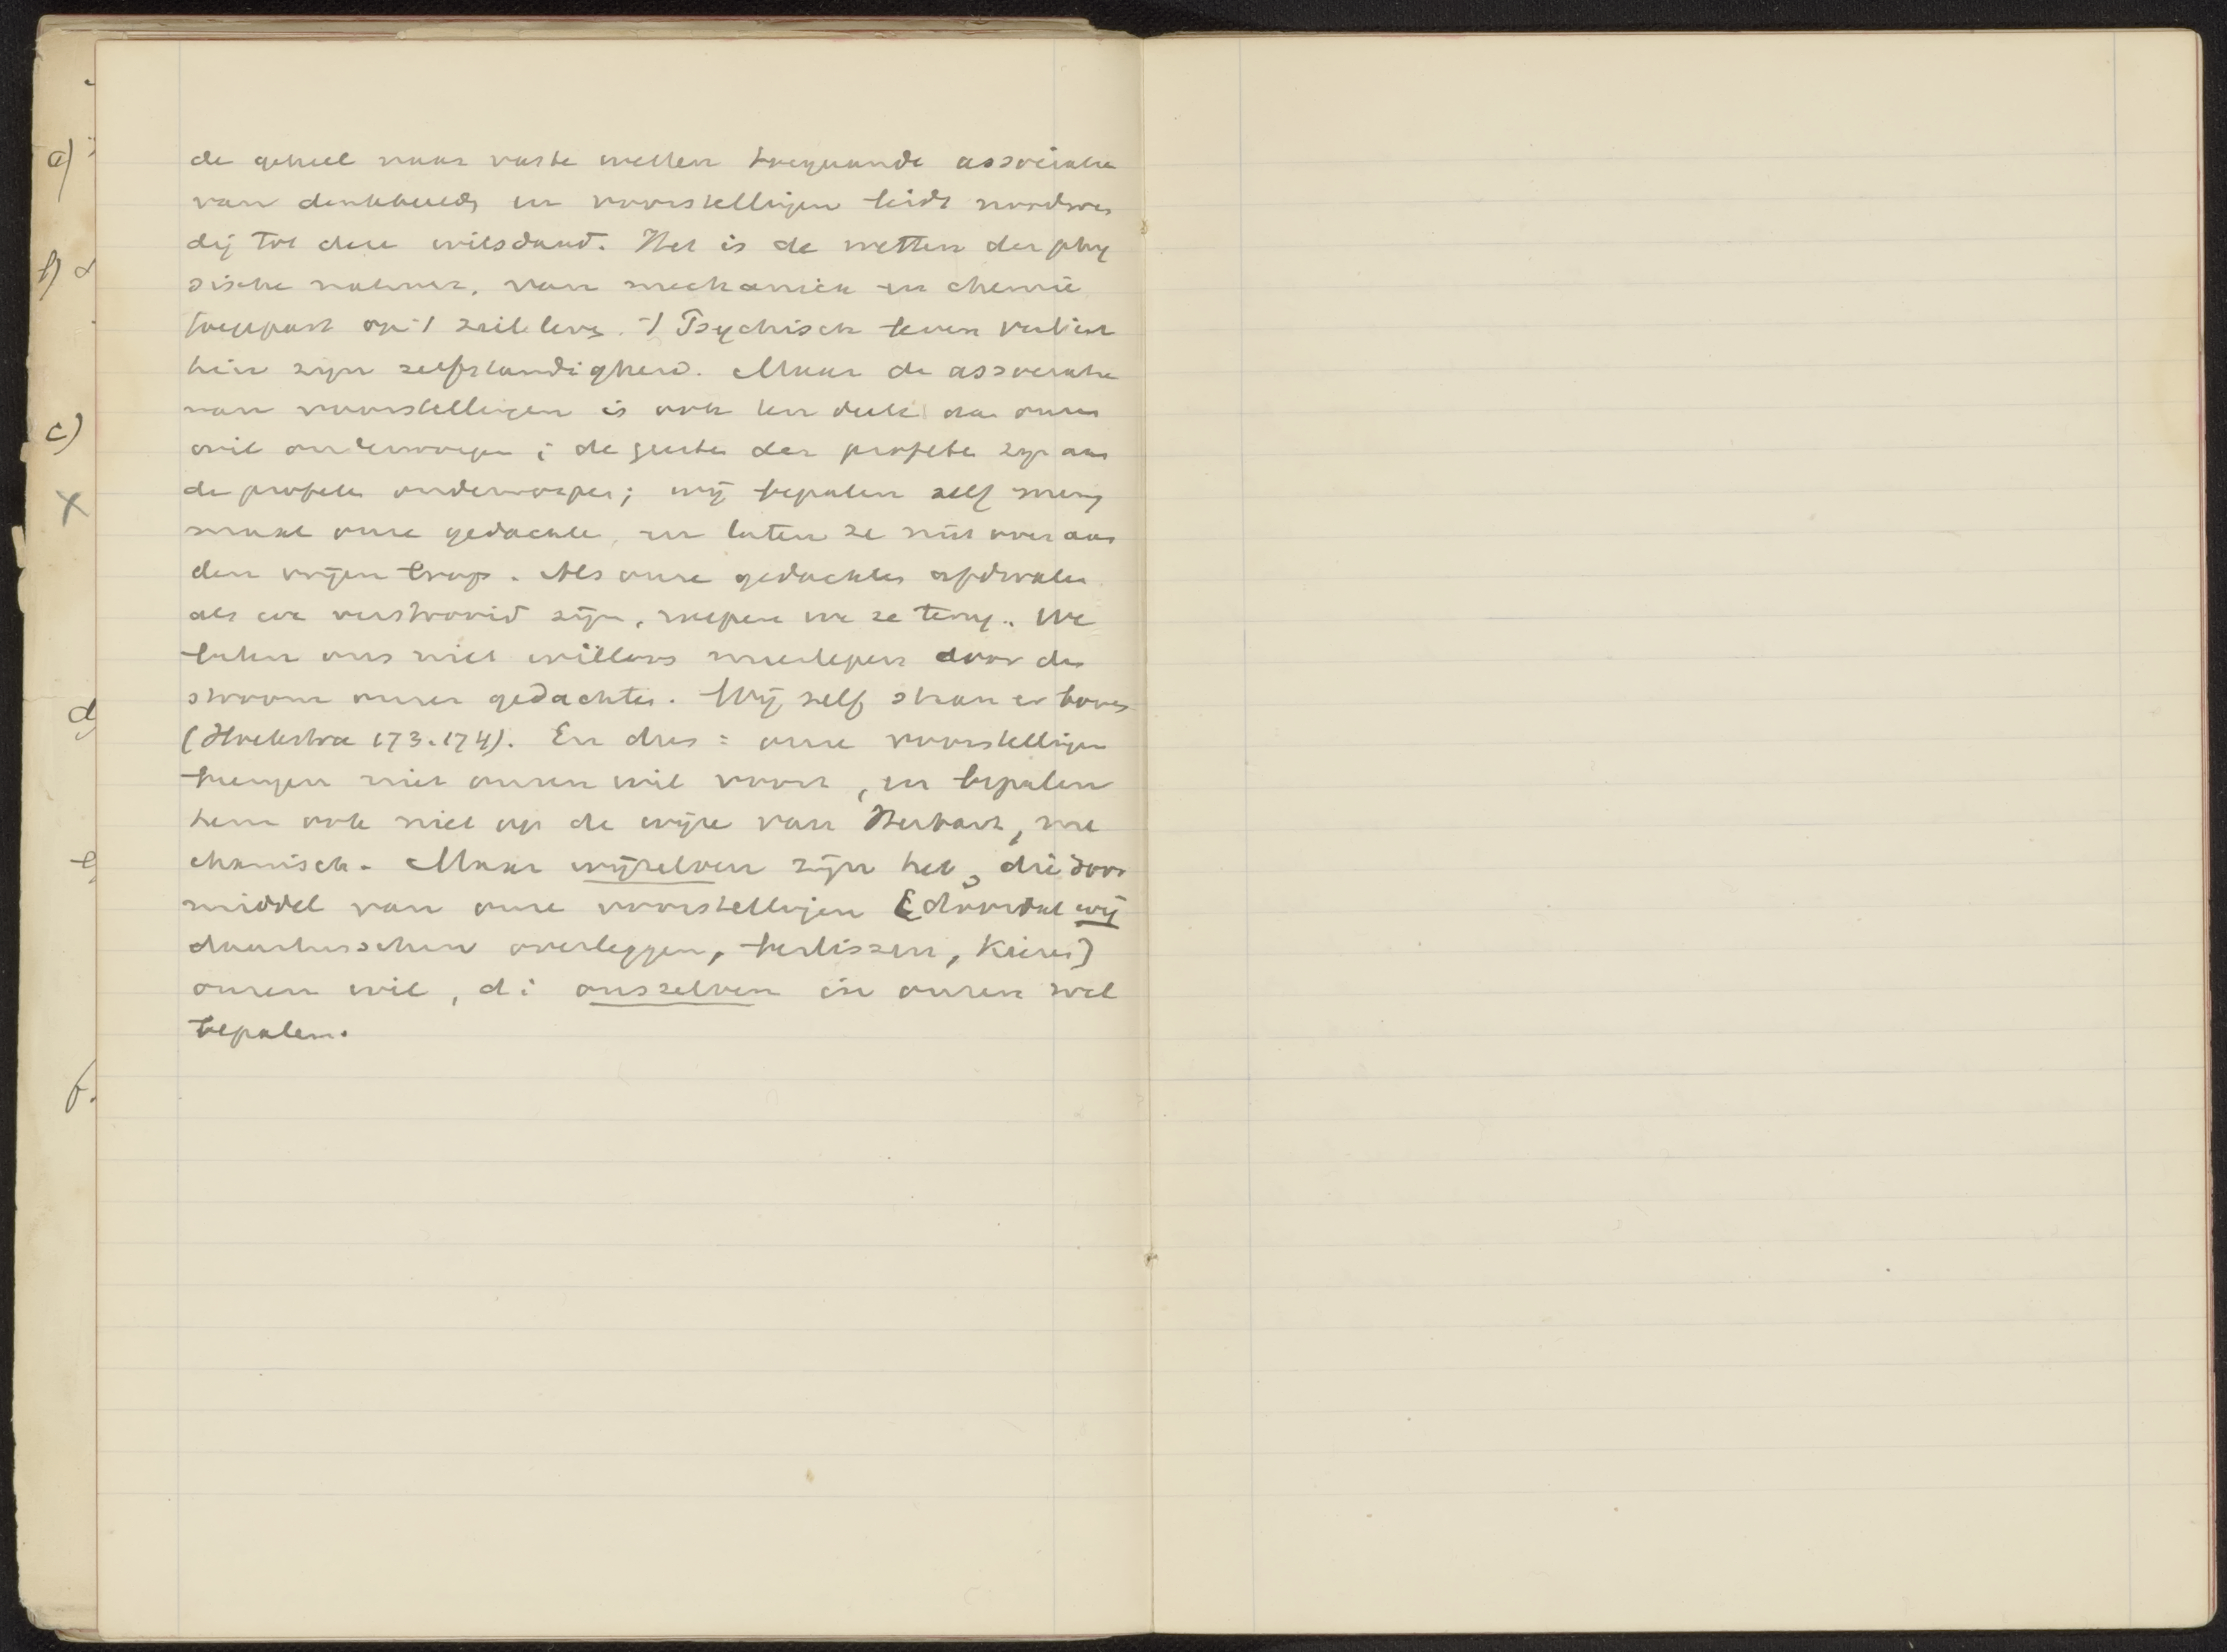 a)
b)
c)
x
d
e
f.
de geheel naar vaste wetten toegaande associatie
van denkbeeld en voorstellingen leidt noodwen
dij tot deze wilsdaad. Het is de wetten der phy
sische natuur, van mechaniek en chemie
toegepast op 't zieleleven. 't Psychisch leven verliest
hier zijn zelfstandigheid. Maar de associatie
van voorstellingen is ook ten deele aan onzen
wil onderworpen; de geesten der profeten zijn aan
de profeten onderworpen; wij bepalen zelf menig
maal onze gedachte, en laten ze niet over aan
den vrijen loop. Als onze gedachten afdwalen
als we verstrooid zijn, roepen we ze terug. We
laten ons niet willoos meeslepen door den
stroom onzer gedachten. Wij zelf staan er boven
(Hoekstra 173.174). En dus: onze voorstellingen
brengen niet onzen wil voort, en bepalen
hem ook niet op de wijze van Herbart, me
chanisch. Maar wijzelven zijn het, die door
middel van onze voorstellingen [doordat wij
daartusschen overleggen, beslissen, kiezen]
onzen wil, di onszelven in onzen wil
bepalen.